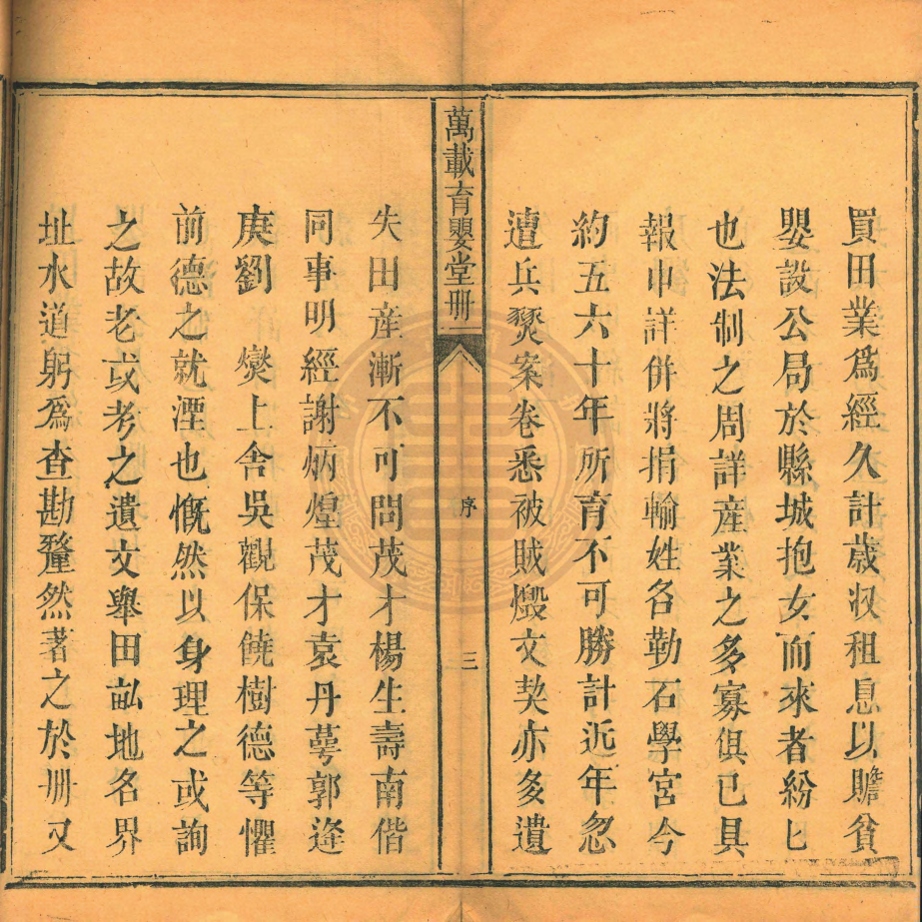 買田業爲經久計歲収租息以贍貧
嬰設公局於縣城抱女而來者紛匕
也法制之周詳産業之多寡俱已具
報申詳併將捐輸姓名勒石學宮今
約五六十年所育不可勝計近年忽
遭兵燹案卷悉被賊燬文契亦多遺
萬載育嬰堂冊
序
三
失田産漸不可問茂才楊生壽南偕
同事明經謝炳煌茂才袁丹蕚郭逢
庚劉爕上舎吳觀保饒樹德等懼
前德之就湮也慨然以身理之或詢
之故老或考之遺文舉田畝地名界
址水道躬爲查勘釐然著之於冊又